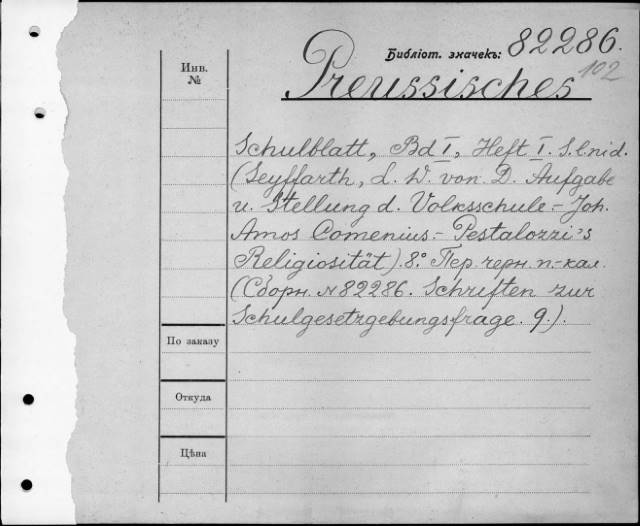 Библіот. значекъ: 82286.
102
Инв.
№
Preussisches
Schulblatt, Bd I, Heft I. S.l.n.d.
(Seyffarth, L. W. von. D. Aufgabe
u. Stellung d. Volksschule.- Joh.
Amos Comenius.- Pestalozzi's
Religiosität). 8.° Пер. черн. п-кал.
(Сборн. №82286. Schriften zur
Schulgesetzgebungsfrage. 9.).
По заказу
Откуда
Цѣна